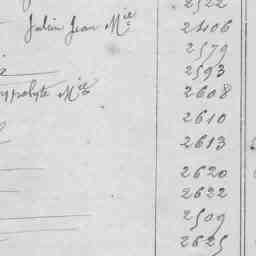 2522
Julien Jean Mie 2406
2579
2593
Hypolyte Mie 2608
2610
2613
2620
2622
2509
2625